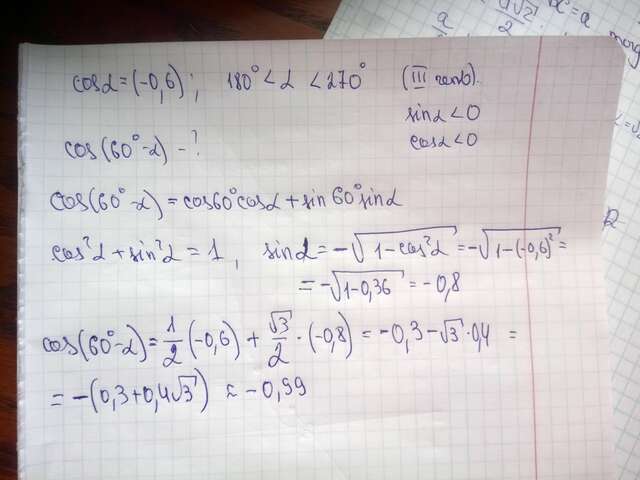 cosα = (-0,6); 180° < α < 270° (III
sinα < 0
cosα < 0
cos(60° - α) - ?
cos(60° - α) = cos60° cosα + sin60° sinα
cos²α + sin²α = 1, sinα = -√1 - cos²α = -√1 - (-0,6)² =
= -√1 - 0,36 = -0,8
cos(60° - α) = 1/2 (-0,6) + √3/2 · (-0,8) = -0,3 - √3 · 0,4 =
= -(0,3 + 0,4√3) ≈ -0,99